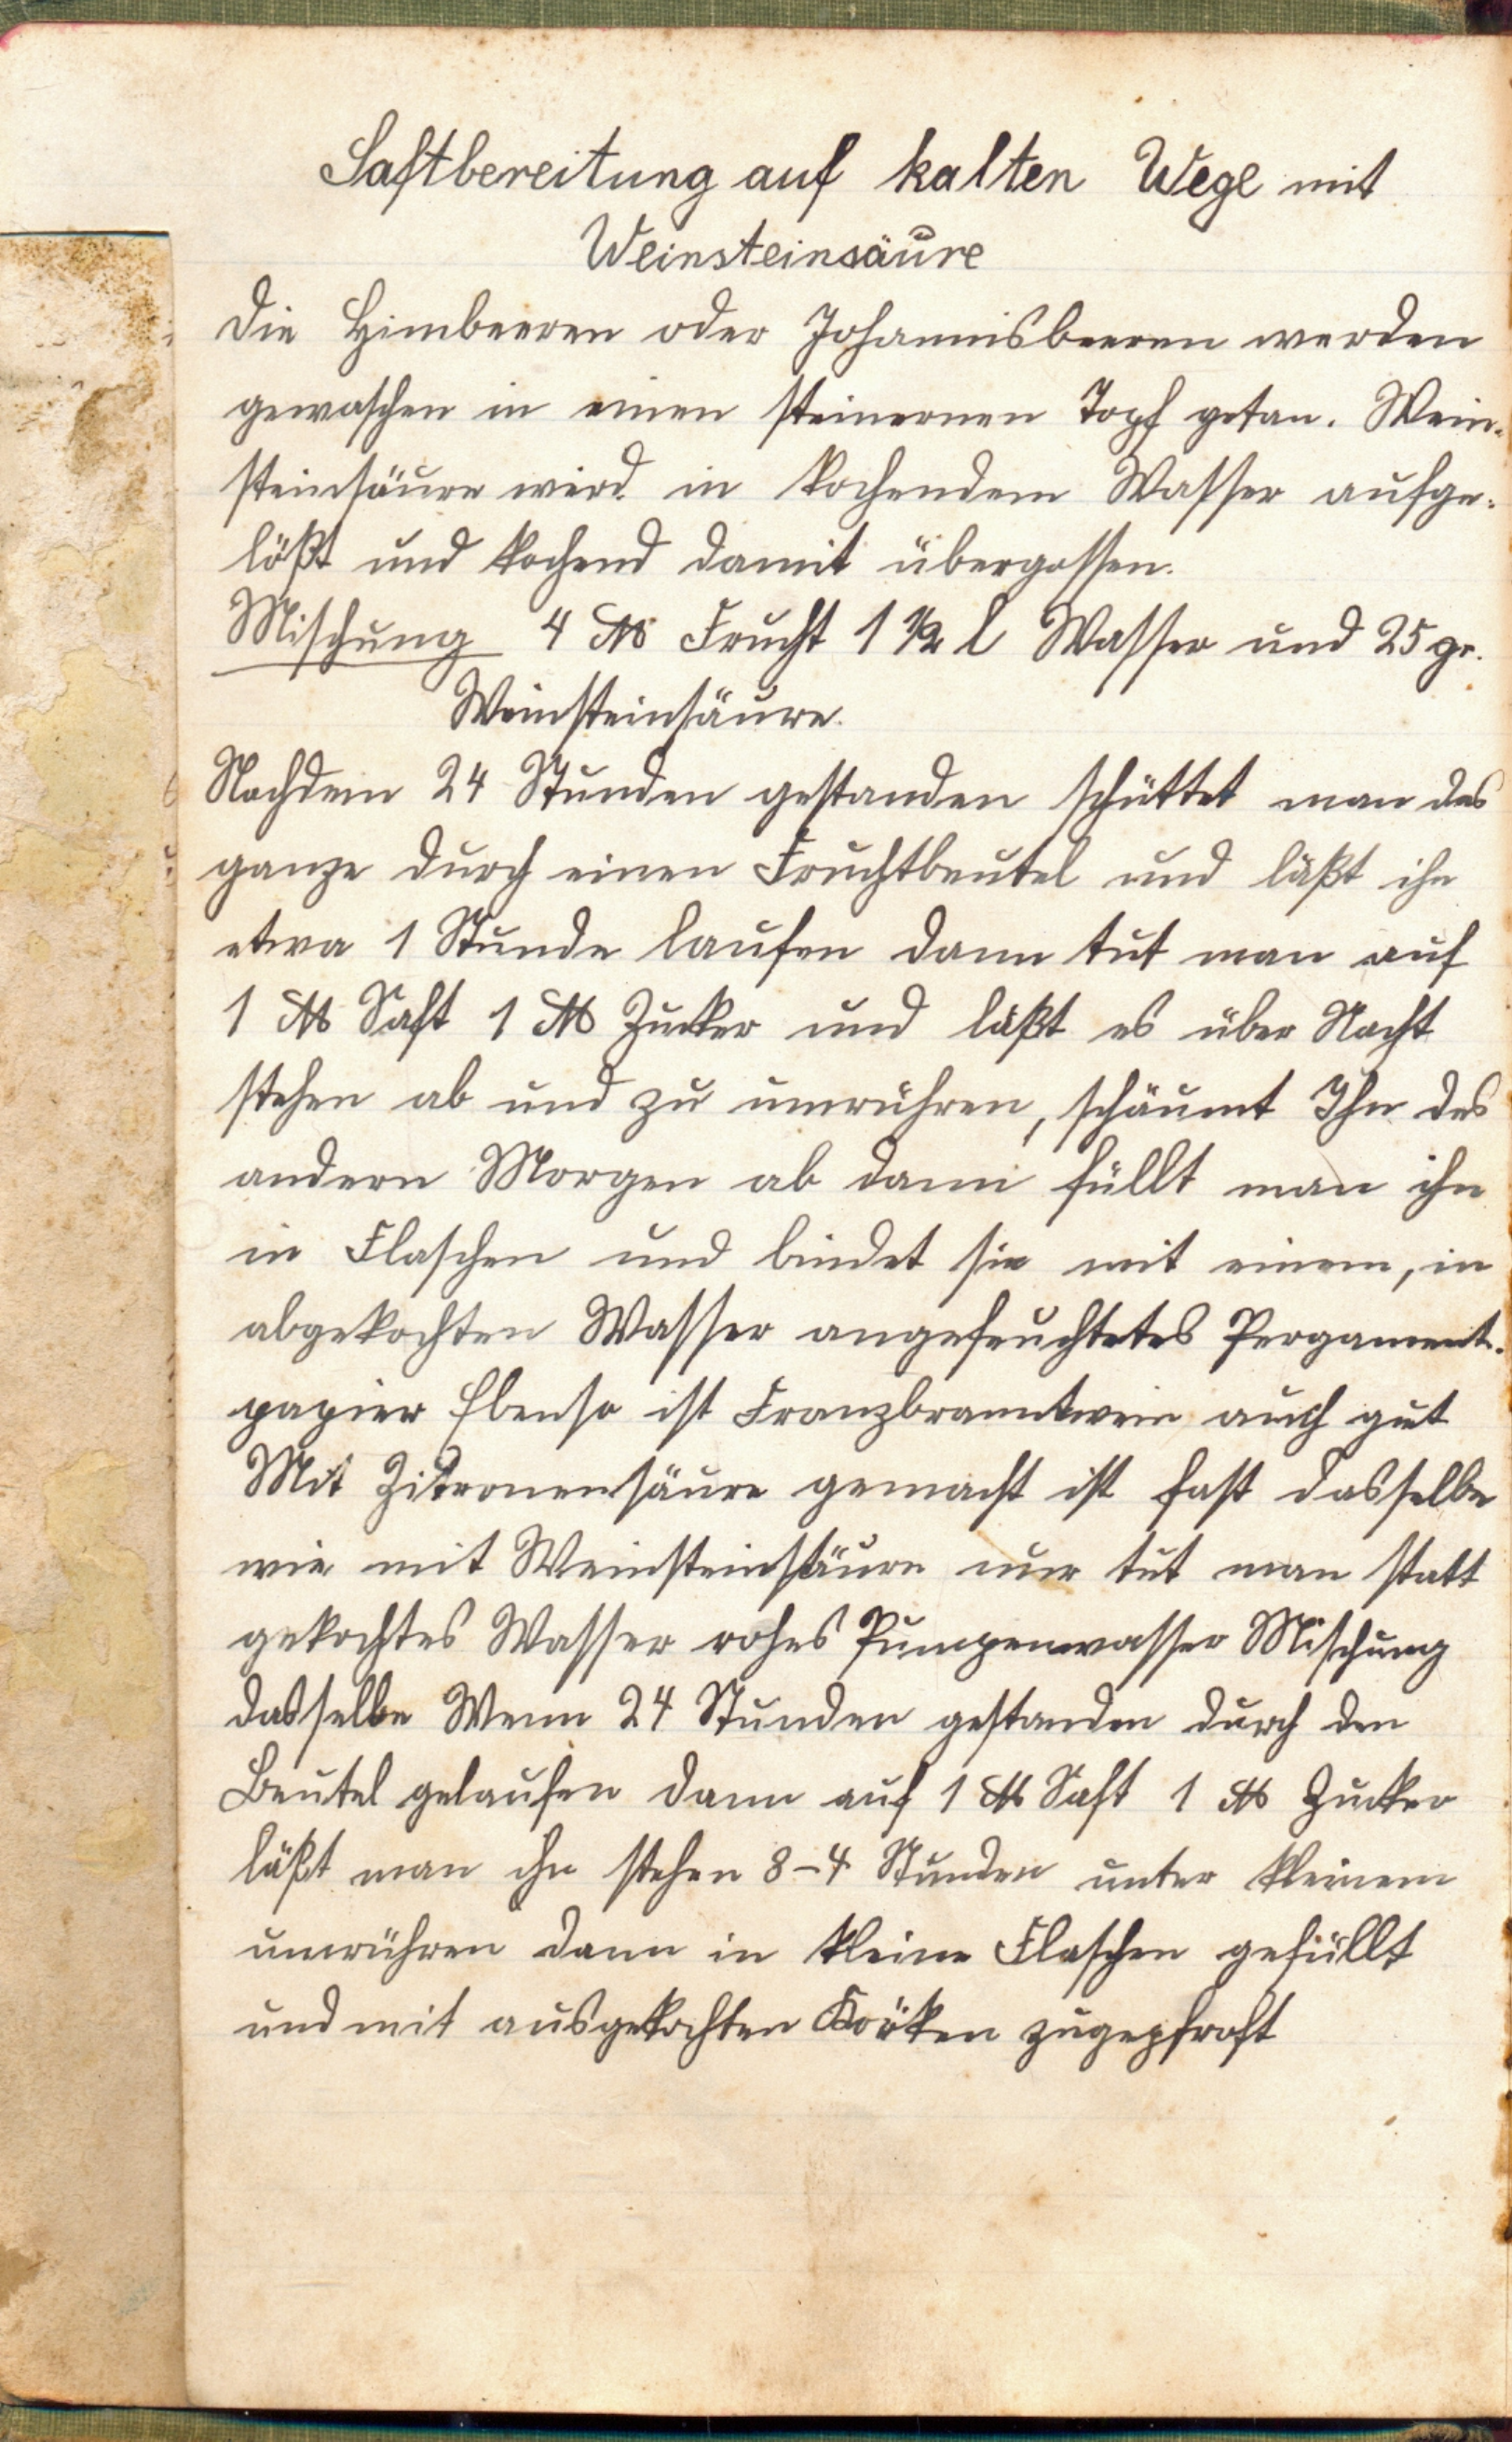 Saftbereitung auf kalten Wege mit
Weinsteinsäure
Die Himbeeren oder Johannisbeeren werden
gewaschen in einen steinernen Topf getan. Wein-
steinsäure wird in kochendem Wasser aufge-
lößt und kochend damit übergossen.
Mischung 4 ℔ Frucht 1 ½ l Wasser und 25 gr.
Weinsteinsäure.
Nachdem 24 Stunden gestanden schüttet man das
ganze durch einen Fruchtbeutel und läßt ihn
etwa 1 Stunde laufen dann tut man auf
1 ℔ Saft 1 ℔ Zucker und läßt es über Nacht
stehen ab und zu umrühren, schäumt Ihn des
andern Morgen ab dann füllt man ihn
in Flaschen und bindet sie mit einem, in
abgekochten Wasser angefeuchtetes Pergament-
papier Ebenso ist Franzbranntwein auch gut
Mit Zitronensäure gemacht ist fast dasselbe
wie mit Weinsteinsäure nur tut man statt
gekochtes Wasser rohes Pumpenwasser Mischung
dasselbe Wenn 24 Stunden gestanden durch den
Beutel gelaufen dann auf 1 ℔ Saft 1 ℔ Zucker
läßt man ihn stehen 8-4 Stunden unter kleinem
umrühren dann in kleine Flaschen gefüllt
und mit ausgekochten Körken zugepfroft